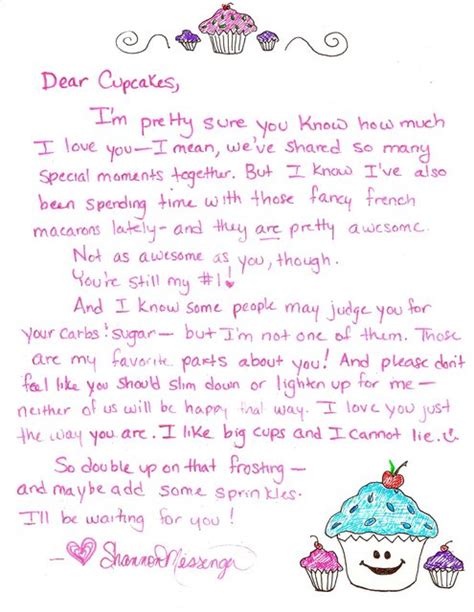 Dear Cupcakes,
I'm pretty sure you know how much
I love you—I mean, we've shared so many
special moments together. But I know I've also
been spending time with those fancy french
macarons lately- and they are pretty awesome.
Not as awesome as you, though.
You're still my #1!
And I know some people may judge you for
your carbs & sugar— but I'm not one of them. Those
are my favorite parts about you! And please don't
feel like you should slim down or lighten up for me—
neither of us will be happy that way. I love you just
the way you are. I like big cups and I cannot lie.
So double up on that frosting—
and maybe add some sprinkles.
I'll be waiting for you!
— Shannon Messenger